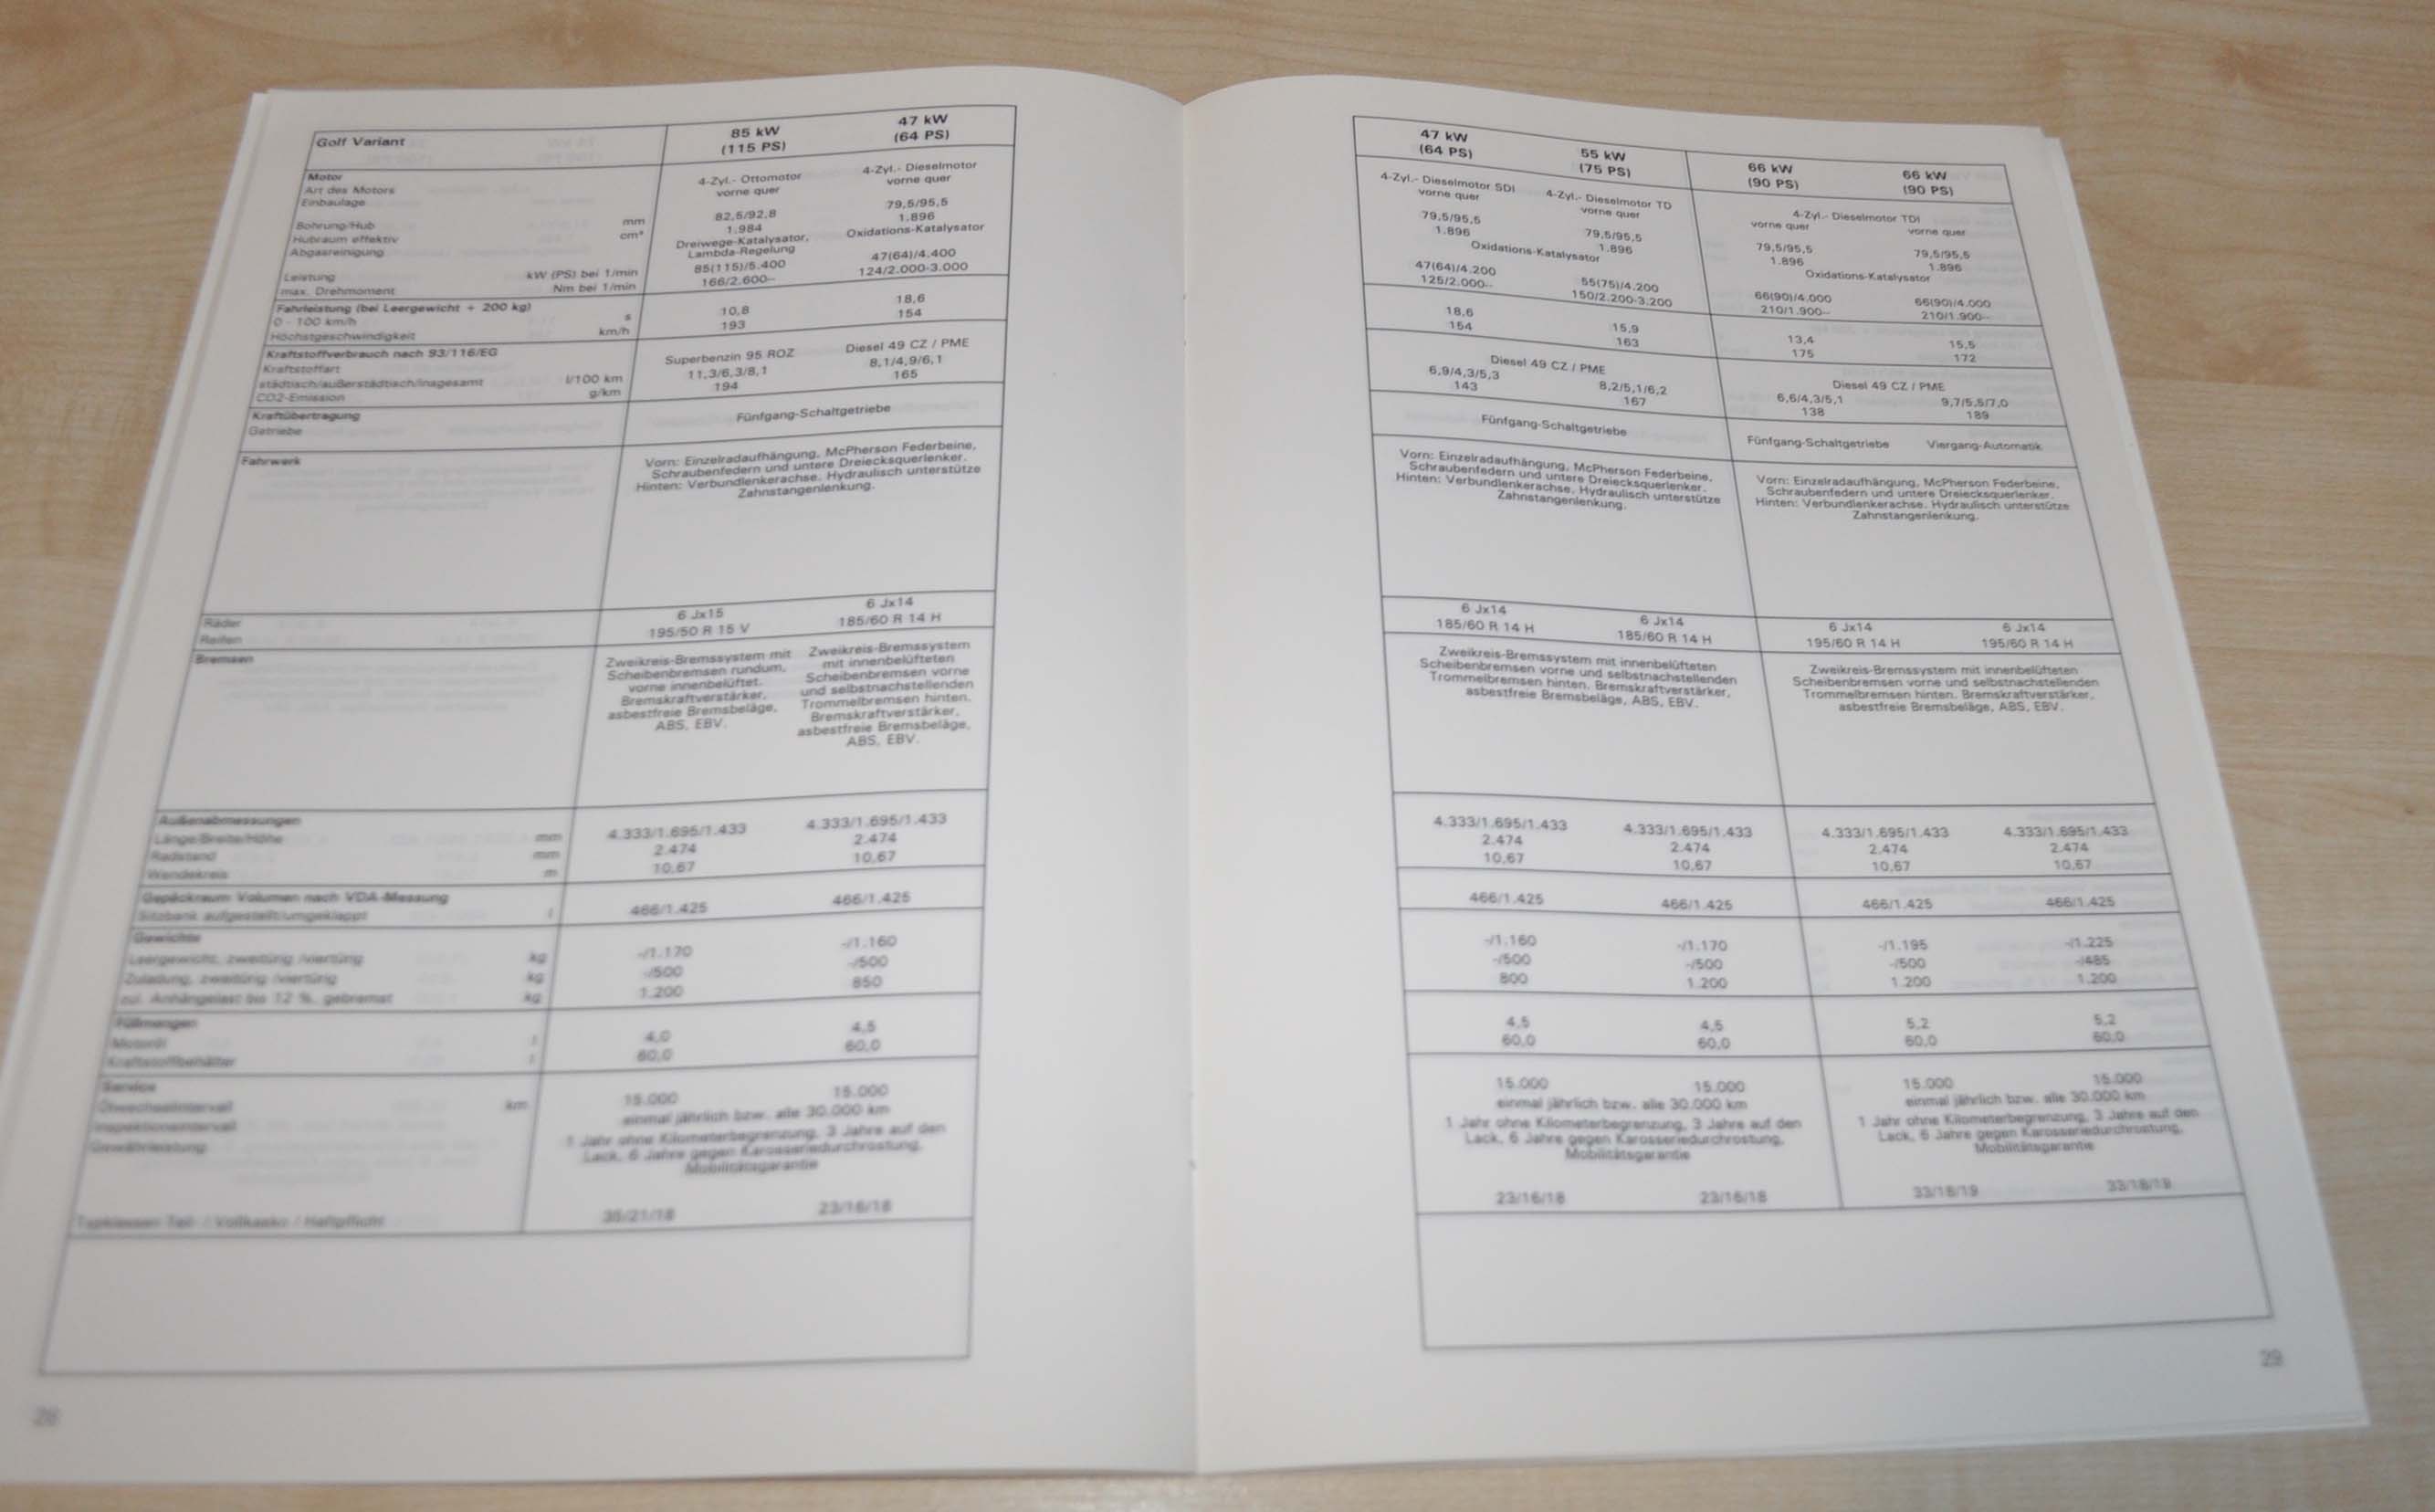 Golf Variant
85 kW
(115 PS)
47 kW
(64 PS)
Motor
Art des Motors
4-Zyl.- Ottomotor
4-Zyl.- Dieselmotor
Einbaulage
vorne quer
vorne quer
Bohrung/Hub mm 82,5/92,8 79,5/95,5
Hubraum effektiv cm³ 1.984 1.896
Abgasreinigung
Dreiwege-Katalysator,
Lambda-Regelung
Oxidations-Katalysator
Leistung kW (PS) bei 1/min 85(115)/5.400 47(64)/4.400
max. Drehmoment Nm bei 1/min 166/2.600-- 124/2.000-3.000
Fahrleistung (bei Leergewicht + 200 kg)
0 - 100 km/h s 10,8 18,6
Höchstgeschwindigkeit km/h 193 154
Kraftstoffverbrauch nach 93/116/EG
Kraftstoffart Superbenzin 95 ROZ Diesel 49 CZ / PME
städtisch/außerstädtisch/insgesamt l/100 km 11,3/6,3/8,1 8,1/4,9/6,1
CO2-Emission g/km 194 165
Kraftübertragung
Getriebe Fünfgang-Schaltgetriebe
Fahrwerk
Vorn: Einzelradaufhängung, McPherson Federbeine,
Schraubenfedern und untere Dreiecksquerlenker.
Hinten: Verbundlenkerachse. Hydraulisch unterstütze
Zahnstangenlenkung.
Räder 6 Jx15 6 Jx14
Reifen 195/50 R 15 V 185/60 R 14 H
Bremsen
Zweikreis-Bremssystem mit
Scheibenbremsen rundum,
vorne innenbelüftet.
Bremskraftverstärker,
asbestfreie Bremsbeläge,
ABS, EBV.
Zweikreis-Bremssystem
mit innenbelüfteten
Scheibenbremsen vorne
und selbstnachstellenden
Trommelbremsen hinten.
Bremskraftverstärker,
asbestfreie Bremsbeläge,
ABS, EBV.
Außenabmessungen
Länge/Breite/Höhe mm 4.333/1.695/1.433 4.333/1.695/1.433
Radstand mm 2.474 2.474
Wendekreis m 10,67 10,67
Gepäckraum-Volumen nach VDA-Messung
Sitzbank aufgestellt/umgeklappt l 466/1.425 466/1.425
Gewichte
Leergewicht, zweitürig /viertürig kg -/1.170 -/1.160
Zuladung, zweitürig /viertürig kg -/500 -/500
zul. Anhängelast bis 12 %, gebremst kg 1.200 850
Füllmengen
Motoröl l 4,0 4,5
Kraftstoffbehälter l 60,0 60,0
Service
Ölwechselintervall km 15.000 15.000
Inspektionsintervall einmal jährlich bzw. alle 30.000 km
Gewährleistung
1 Jahr ohne Kilometerbegrenzung, 3 Jahre auf den
Lack, 6 Jahre gegen Karosseriedurchrostung,
Mobilitätsgarantie
Typklassen Teil- / Vollkasko / Haftpflicht 35/21/18 23/16/18
47 kW
(64 PS)
55 kW
(75 PS)
66 kW
(90 PS)
66 kW
(90 PS)
4-Zyl.- Dieselmotor SDI
vorne quer
4-Zyl.- Dieselmotor TD
vorne quer
4-Zyl.- Dieselmotor TDI
vorne quer vorne quer
79,5/95,5 79,5/95,5 79,5/95,5 79,5/95,5
1.896 1.896 1.896 1.896
Oxidations-Katalysator Oxidations-Katalysator
47(64)/4.200 55(75)/4.200 66(90)/4.000 66(90)/4.000
125/2.000-- 150/2.200-3.200 210/1.900-- 210/1.900--
18,6 15,9 13,4 15,5
154 163 175 172
Diesel 49 CZ / PME Diesel 49 CZ / PME
6,9/4,3/5,3 8,2/5,1/6,2 6,6/4,3/5,1 9,7/5,5/7,0
143 167 138 189
Fünfgang-Schaltgetriebe Fünfgang-Schaltgetriebe Viergang-Automatik
Vorn: Einzelradaufhängung, McPherson Federbeine,
Schraubenfedern und untere Dreiecksquerlenker.
Hinten: Verbundlenkerachse. Hydraulisch unterstütze
Zahnstangenlenkung.
Vorn: Einzelradaufhängung, McPherson Federbeine,
Schraubenfedern und untere Dreiecksquerlenker.
Hinten: Verbundlenkerachse. Hydraulisch unterstütze
Zahnstangenlenkung.
6 Jx14 6 Jx14 6 Jx14 6 Jx14
185/60 R 14 H 185/60 R 14 H 195/60 R 14 H 195/60 R 14 H
Zweikreis-Bremssystem mit innenbelüfteten
Scheibenbremsen vorne und selbstnachstellenden
Trommelbremsen hinten. Bremskraftverstärker,
asbestfreie Bremsbeläge, ABS, EBV.
Zweikreis-Bremssystem mit innenbelüfteten
Scheibenbremsen vorne und selbstnachstellenden
Trommelbremsen hinten. Bremskraftverstärker,
asbestfreie Bremsbeläge, ABS, EBV.
4.333/1.695/1.433 4.333/1.695/1.433 4.333/1.695/1.433 4.333/1.695/1.433
2.474 2.474 2.474 2.474
10,67 10,67 10,67 10,67
466/1.425 466/1.425 466/1.425 466/1.425
-/1.160 -/1.170 -/1.195 -/1.225
-/500 -/500 -/500 -/485
800 1.200 1.200 1.200
4,5 4,5 5,2 5,2
60,0 60,0 60,0 60,0
15.000 15.000 15.000 15.000
einmal jährlich bzw. alle 30.000 km einmal jährlich bzw. alle 30.000 km
1 Jahr ohne Kilometerbegrenzung, 3 Jahre auf den
Lack, 6 Jahre gegen Karosseriedurchrostung,
Mobilitätsgarantie
1 Jahr ohne Kilometerbegrenzung, 3 Jahre auf den
Lack, 6 Jahre gegen Karosseriedurchrostung,
Mobilitätsgarantie
23/16/18 23/16/18 33/18/19 33/18/19
29